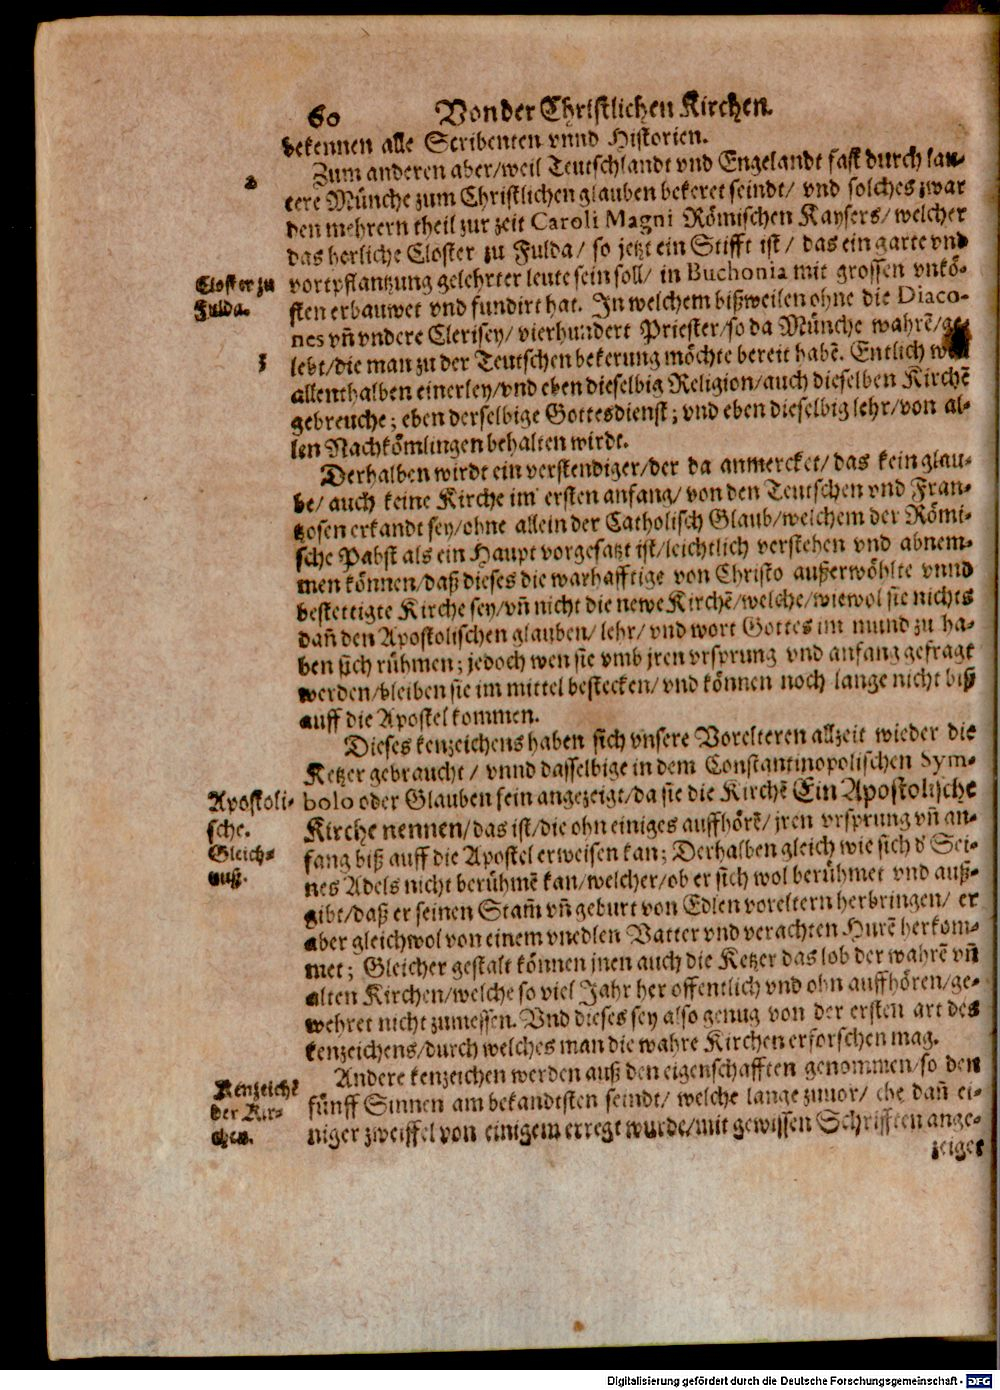 60 Von der Christlichen Kirchen.
bekennen alle Scribenten vnnd Historien.
2
Zum anderen aber/weil Teutschlandt vnd Engelandt fast durch lau-
tere Münche zum Christlichen glauben bekeret seindt/ vnd solches zwar
den mehrern theil zur zeit Caroli Magni Römischen Kaysers/ welcher
das herliche Closter zu Fulda/ so jetzt ein Stifft ist/ das ein garte vnd
Closter zu
Fulda.
vortpflantzung gelehrter leute sein soll/ in Buchonia mit grossen vnkö-
sten erbauwet vnd fundirt hat. In welchem bißweilen ohne die Diaco-
nes vñ vndere Clerisey/ vierhundert Priester/so da Münche wahrẽ/ge-
3
lebt/die man zu der Teutschen bekerung möchte bereit habẽ. Entlich weil
allenthalben einerley/vnd eben dieselbig Religion/auch dieselben Kirchẽ
gebreuche; eben derselbige Gottesdienst; vnd eben dieselbig lehr/von al-
len Nachkömlingen behalten wirdt.
Derhalben wirdt ein verstendiger/der da anmercket/ das kein glau-
be/ auch keine Kirche im ersten anfang/ von den Teutschen vnd Fran-
tzosen erkandt sey/ohne allein der Catholisch Glaub/welchem der Römi-
sche Pabst als ein Haupt vorgesatzt ist/leichtlich verstehen vnd abnem-
men können/daß dieses die warhafftige von Christo außerwöhlte vnnd
bestettigte Kirche sey/vñ nicht die newe Kirchẽ/welche/wiewol sie nichts
dañ den Apostolischen glauben/ lehr/ vnd wort Gottes im mund zu ha-
ben sich rühmen; jedoch wen sie vmb jren vrsprung vnd anfang gefragt
werden/bleiben sie im mittel bestecken/ vnd können noch lange nicht biß
auff die Apostel kommen.
Dieses kenzeichens haben sich vnsere Vorelteren allzeit wieder die
Ketzer gebraucht/ vnnd dasselbige in dem Constantinopolischen Sym-
Apostoli-
sche.
bolo oder Glauben fein angezeigt/da sie die Kirchẽ Ein Apostolische
Kirche nennen/das ist/die ohn einiges auffhörẽ/ jren vrsprung vñ an-
Gleich-
nuß.
fang biß auff die Apostel erweisen kan; Derhalben gleich wie sich d' Sei-
nes Adels nicht berühmẽ kan/welcher/ob er sich wol berühmet vnd auß-
gibt/daß er seinen Stam̃ vñ geburt von Edlen voreltern herbringen/ er
aber gleichwol von einem vnedlen Vatter vnd verachten Hurẽ herkom-
met; Gleicher gestalt können jnen auch die Ketzer das lob der wahrẽ vñ
alten Kirchen/welche so viel Jahr her offentlich vnd ohn auffhören/ge-
wehret nicht zumessen. Vnd dieses sey also genug von der ersten art des
kenzeichens/durch welches man die wahre Kirchen erforschen mag.
Kenzeichẽ
der Kir-
chen.
Andere kenzeichen werden auß den eigenschafften genommen/so den
fünff Sinnen am bekandtsten seindt/ welche lange zuuor/ ehe dañ ei-
niger zweiffel von einigem erregt wurde/mit gewissen Schrifften ange-
zeiget
Digitalisierung gefördert durch die Deutsche Forschungsgemeinschaft - DFG